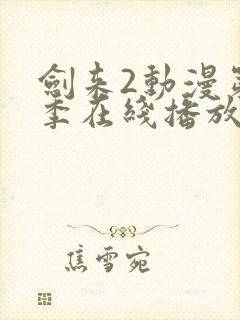 劍来2動漫
季在綫播放
焦雪宛